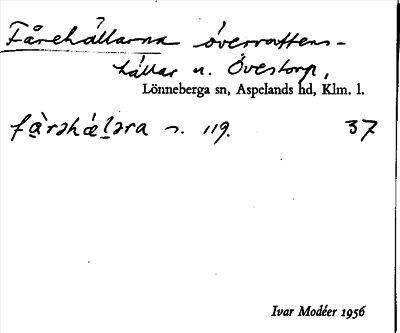 Fårehällarna övervattens-
hällar n. Övestorp,
Lönneberga sn, Aspelands hd, Klm. l.
fàrəhæ̀ḷəra n. 119. 37
Ivar Modéer 1956